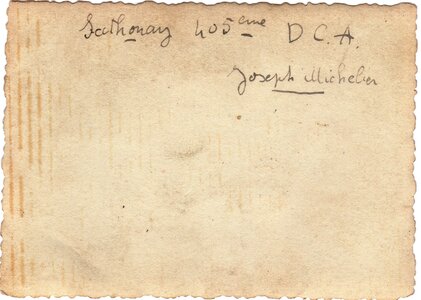 Sathonay 405ème D C. A.
Joseph Michelier